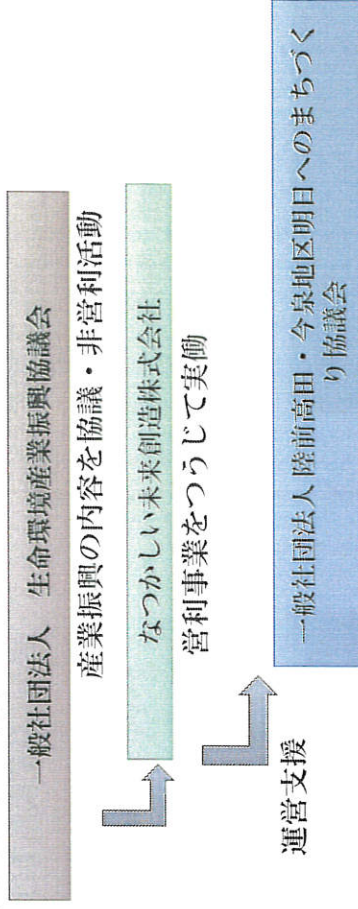 一般社団法人　生命環境産業振興協議会
産業振興の内容を協議・非営利活動
なつかしい未来創造株式会社
営利事業をつうじて実働
運営支援
一般社団法人 陸前高田・今泉地区明日へのまちづく
り協議会